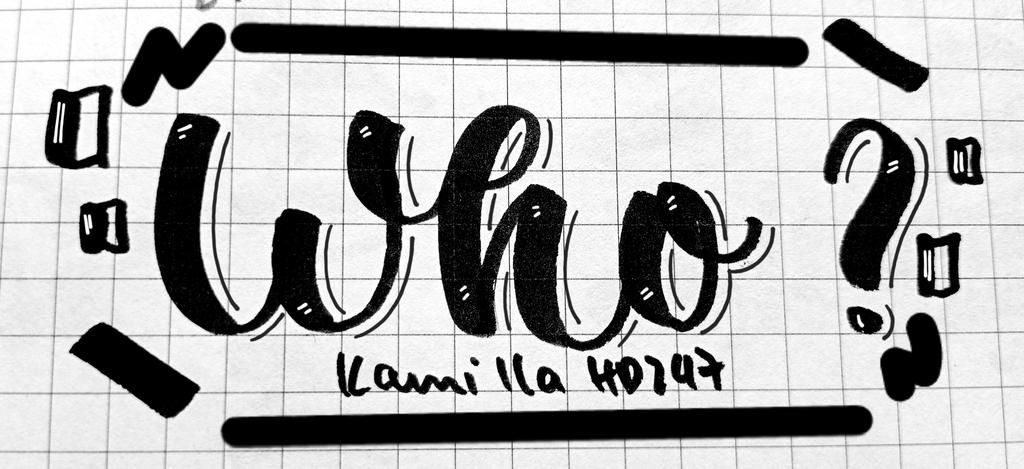 Who?
Kamilla HD747